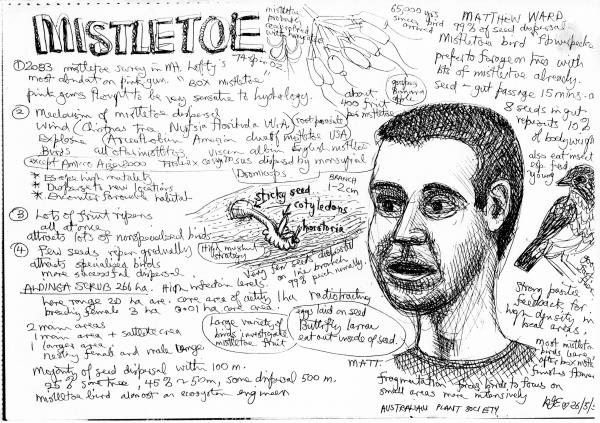 MISTLETOE
① 2003 mistletoe survey in Mt. Lofty's
most abundant on pink gum. "Box mistletoe"
pink gums thought to be very sensitive to hydrology.
② Mechanism of mistletoe dispersal
Wind (Christmas Tree, Nuytsia floribunda W.A.) root parasite
Explosive (Arceuthobium American dwarf mistletoe USA)
Birds all other mistletoes Viscum album English mistletoe
dispersed by marsupial
* Escapes high mortality
* Disperse to new locations
* Encounter favourable habitat
③ Lots of fruit ripens
all at once
attracts lots of nonspecialised birds
④ Few seeds ripen gradually
attracts specialised birds
more successful dispersal.
ALDINGA SCRUB 266 ha. High infection levels.
home range 20 ha are. core area of activity 1 ha radiotracking
breeding female 3 ha 0.01 ha core area.
2 main areas
1 main area + satellite area
1 larger area
nesting female and male large
Majority of seed dispersal within 100 m.
same tree, 45% ~50m, some dispersal 500 m.
mistletoe bird almost an ecosystem engineer
mistletoe
65,000 yrs
since bird
arrived
about
400 fruit
per mistletoe
BRANCH
1-2 cm
sticky seed
cotyledons
haustoria
very few seeds dispersed
on 1 branch
eggs laid on seed
butterfly larva
eat out inside of seed.
Large variety of
birds investigate
mistletoe fruit
MATTHEW WARD
99% of seed dispersal
Mistletoe bird flowerpecker
prefer to forage on tree with
lots of mistletoe already.
seed - gut passage 15 mins
8 seeds in gut
represents 10%
of bodyweight
also eat insect
young
strong positive
feedback for
high density in
local areas.
most mistletoe
birds leave
after box mistletoe
finishes flower
MATT.
fragmentation forces birds to focus on
small areas more intensively
AUSTRALIAN PLANT SOCIETY